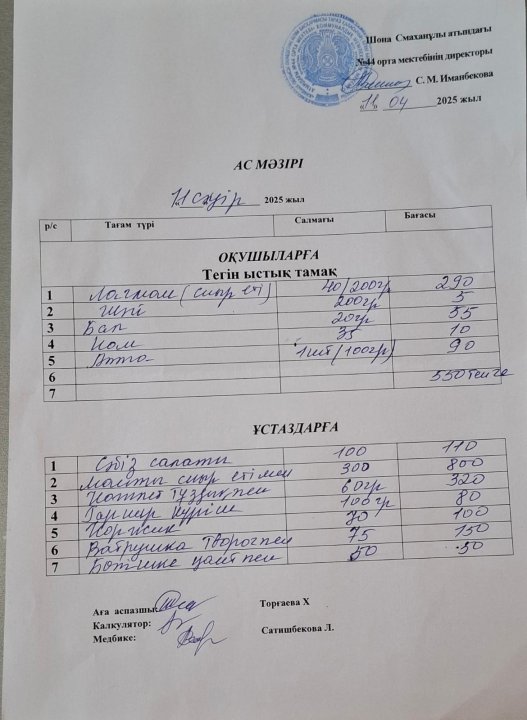 Шона Смаханұлы атындағы
№44 орта мектебінің директоры
С. М. Иманбекова
„11" 04 2025 жыл
АС МӘЗІРІ
11 сәуір 2025 жыл
р/с Тағам түрі Салмағы Бағасы
ОҚУШЫЛАРҒА
Тегін ыстық тамақ
1 Лагман (сиыр еті) 40/200гр 290
2 Шәй 200гр 5
3 Бал 20гр 55
4 Нан 35 10
5 Алма 1шт (100гр) 90
6 550 теңге
7
ҰСТАЗДАРҒА
1 Сәбіз салаты 100 110
2 Манты сиыр етімен 300 800
3 Котлет тұздықпен 60гр 320
4 Гарнир күріш 100гр 80
5 Коржик 70 100
6 Ватрушка творогпен 75 150
7 50 50
Аға аспазшы: Торғаева Х
Калкулятор:
Медбике: Сатишбекова Л.